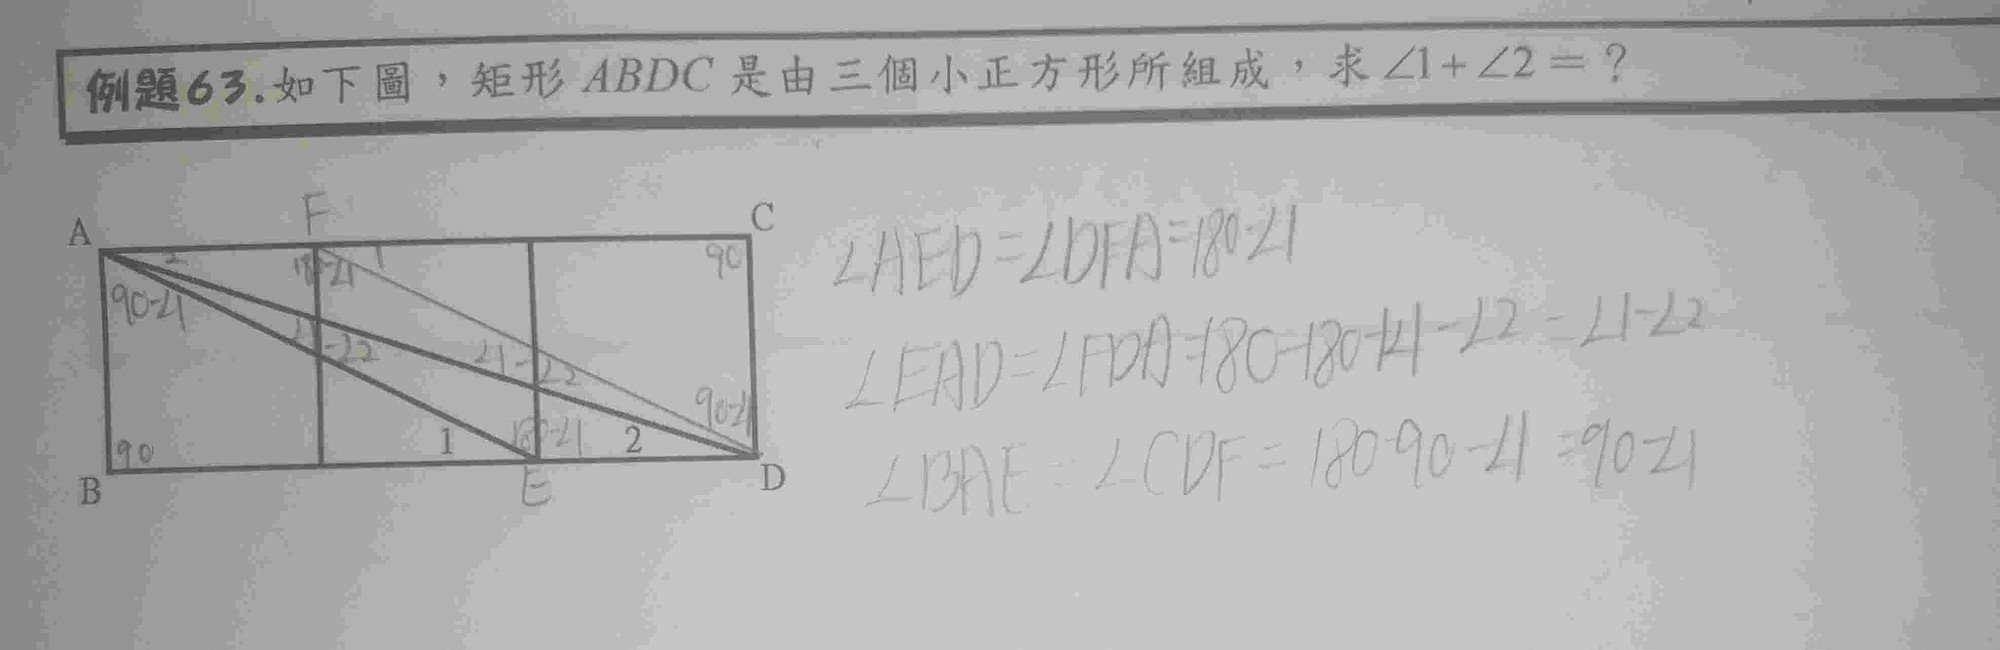 例題63.如下圖，矩形 ABDC 是由三個小正方形所組成，求 ∠1+∠2=?
F
A
C
2
1
180-∠1
90
90-∠1
∠1-∠2
∠1-∠2
90-∠1
90
1
180-∠1
2
B
E
D
∠AED=∠DFA=180-∠1
∠EAD=∠FDA=180-180+∠1-∠2=∠1-∠2
∠BAE=∠CDF=180-90-∠1=90-∠1